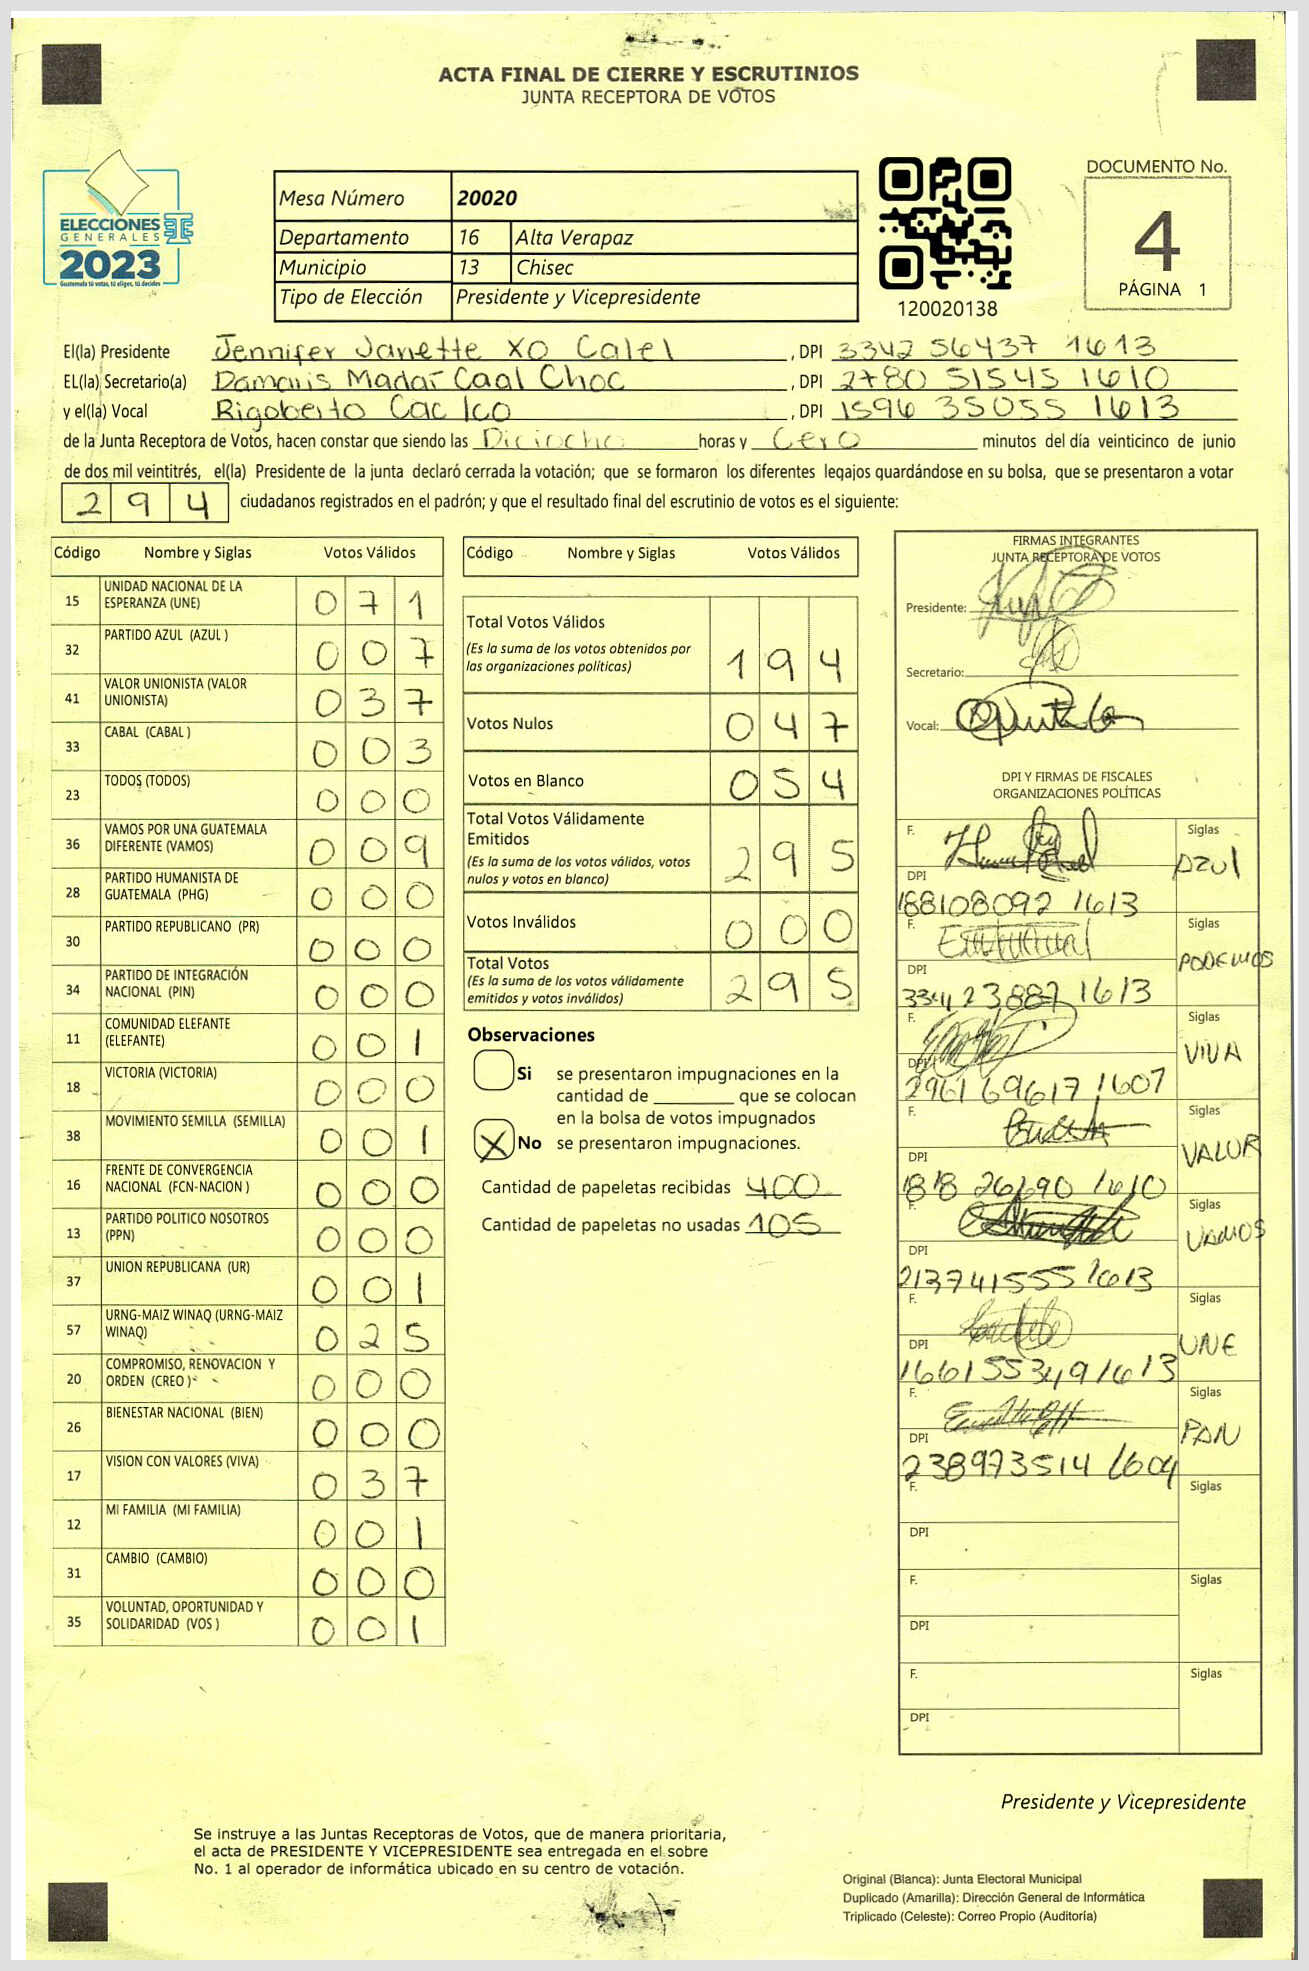 ACTA FINAL DE CIERRE Y ESCRUTINIOS
JUNTA RECEPTORA DE VOTOS
ELECCIONES
GENERALES
2023
Guatemala tú votas, tú eliges, tú decides
Mesa Número 20020
Departamento 16 Alta Verapaz
Municipio 13 Chisec
Tipo de Elección Presidente y Vicepresidente
120020138
DOCUMENTO No.
4
PÁGINA 1
El(la) Presidente Jennifer Janette Xo Calel , DPI 3342 56437 1613
EL(la) Secretario(a) Damaris Madaí Caal Choc , DPI 2780 51545 1610
y el(la) Vocal Rigoberto Cac Ico , DPI 1596 35055 1613
de la Junta Receptora de Votos, hacen constar que siendo las Dieciocho horas y Cero minutos del día veinticinco de junio
de dos mil veintitrés, el(la) Presidente de la junta declaró cerrada la votación; que se formaron los diferentes legajos guardándose en su bolsa, que se presentaron a votar
294 ciudadanos registrados en el padrón; y que el resultado final del escrutinio de votos es el siguiente:
Código Nombre y Siglas Votos Válidos
15 UNIDAD NACIONAL DE LA ESPERANZA (UNE) 071
32 PARTIDO AZUL (AZUL ) 007
41 VALOR UNIONISTA (VALOR UNIONISTA) 037
33 CABAL (CABAL ) 003
23 TODOS (TODOS) 000
36 VAMOS POR UNA GUATEMALA DIFERENTE (VAMOS) 009
28 PARTIDO HUMANISTA DE GUATEMALA (PHG) 000
30 PARTIDO REPUBLICANO (PR) 000
34 PARTIDO DE INTEGRACIÓN NACIONAL (PIN) 000
11 COMUNIDAD ELEFANTE (ELEFANTE) 001
18 VICTORIA (VICTORIA) 000
38 MOVIMIENTO SEMILLA (SEMILLA) 001
16 FRENTE DE CONVERGENCIA NACIONAL (FCN-NACION ) 000
13 PARTIDO POLITICO NOSOTROS (PPN) 000
37 UNION REPUBLICANA (UR) 001
57 URNG-MAIZ WINAQ (URNG-MAIZ WINAQ) 025
20 COMPROMISO, RENOVACION Y ORDEN (CREO ) 000
26 BIENESTAR NACIONAL (BIEN) 000
17 VISION CON VALORES (VIVA) 037
12 MI FAMILIA (MI FAMILIA) 001
31 CAMBIO (CAMBIO) 000
35 VOLUNTAD, OPORTUNIDAD Y SOLIDARIDAD (VOS ) 001
Código Nombre y Siglas Votos Válidos
Total Votos Válidos
(Es la suma de los votos obtenidos por
las organizaciones políticas) 194
Votos Nulos 047
Votos en Blanco 054
Total Votos Válidamente
Emitidos
(Es la suma de los votos válidos, votos
nulos y votos en blanco) 295
Votos Inválidos 000
Total Votos
(Es la suma de los votos válidamente
emitidos y votos inválidos) 295
Observaciones
Si se presentaron impugnaciones en la
cantidad de ________ que se colocan
en la bolsa de votos impugnados
X No se presentaron impugnaciones.
Cantidad de papeletas recibidas 400
Cantidad de papeletas no usadas 105
FIRMAS INTEGRANTES
JUNTA RECEPTORA DE VOTOS
Presidente:
Secretario:
Vocal:
DPI Y FIRMAS DE FISCALES
ORGANIZACIONES POLÍTICAS
F. Siglas AZUL
DPI 188108092 1613
F. Siglas PODEMOS
DPI 334123887 1613
F. Siglas VIVA
DPI 2961 69617 1607
F. Siglas VALOR
DPI 1818 26690 1610
F. Siglas VAMOS
DPI 213741555 1613
F. Siglas UNE
DPI 166155349 1613
F. Siglas PAN
DPI 238973514 1604
F. Siglas
DPI
F. Siglas
DPI
F. Siglas
DPI
Presidente y Vicepresidente
Se instruye a las Juntas Receptoras de Votos, que de manera prioritaria,
el acta de PRESIDENTE Y VICEPRESIDENTE sea entregada en el sobre
No. 1 al operador de informática ubicado en su centro de votación.
Original (Blanca): Junta Electoral Municipal
Duplicado (Amarilla): Dirección General de Informática
Triplicado (Celeste): Correo Propio (Auditoría)